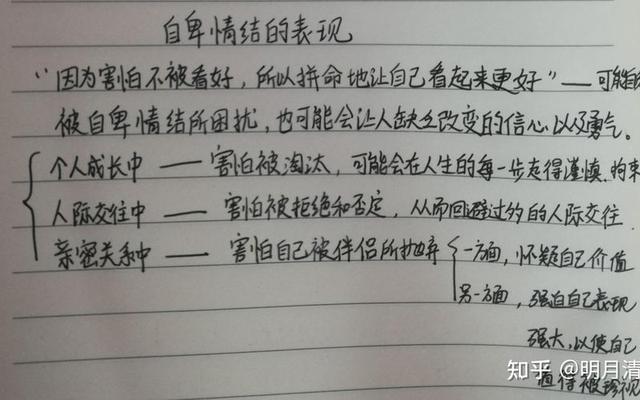 自卑情结的表现
“因为害怕不被看好，所以拼命地让自己看起来更好”——可能
被自卑情结所困扰，也可能会让人缺乏改变的信心以及勇气。
个人成长中 —— 害怕被淘汰，可能会在人生的每一步走得谨慎、拘束
人际交往中 —— 害怕被拒绝和否定，从而回避过多的人际交往
亲密关系中 —— 害怕自己被伴侣所抛弃 一方面，怀疑自己价值
另一方面，强迫自己表现
强大，以使自己
值得被珍视
知乎 @明月清